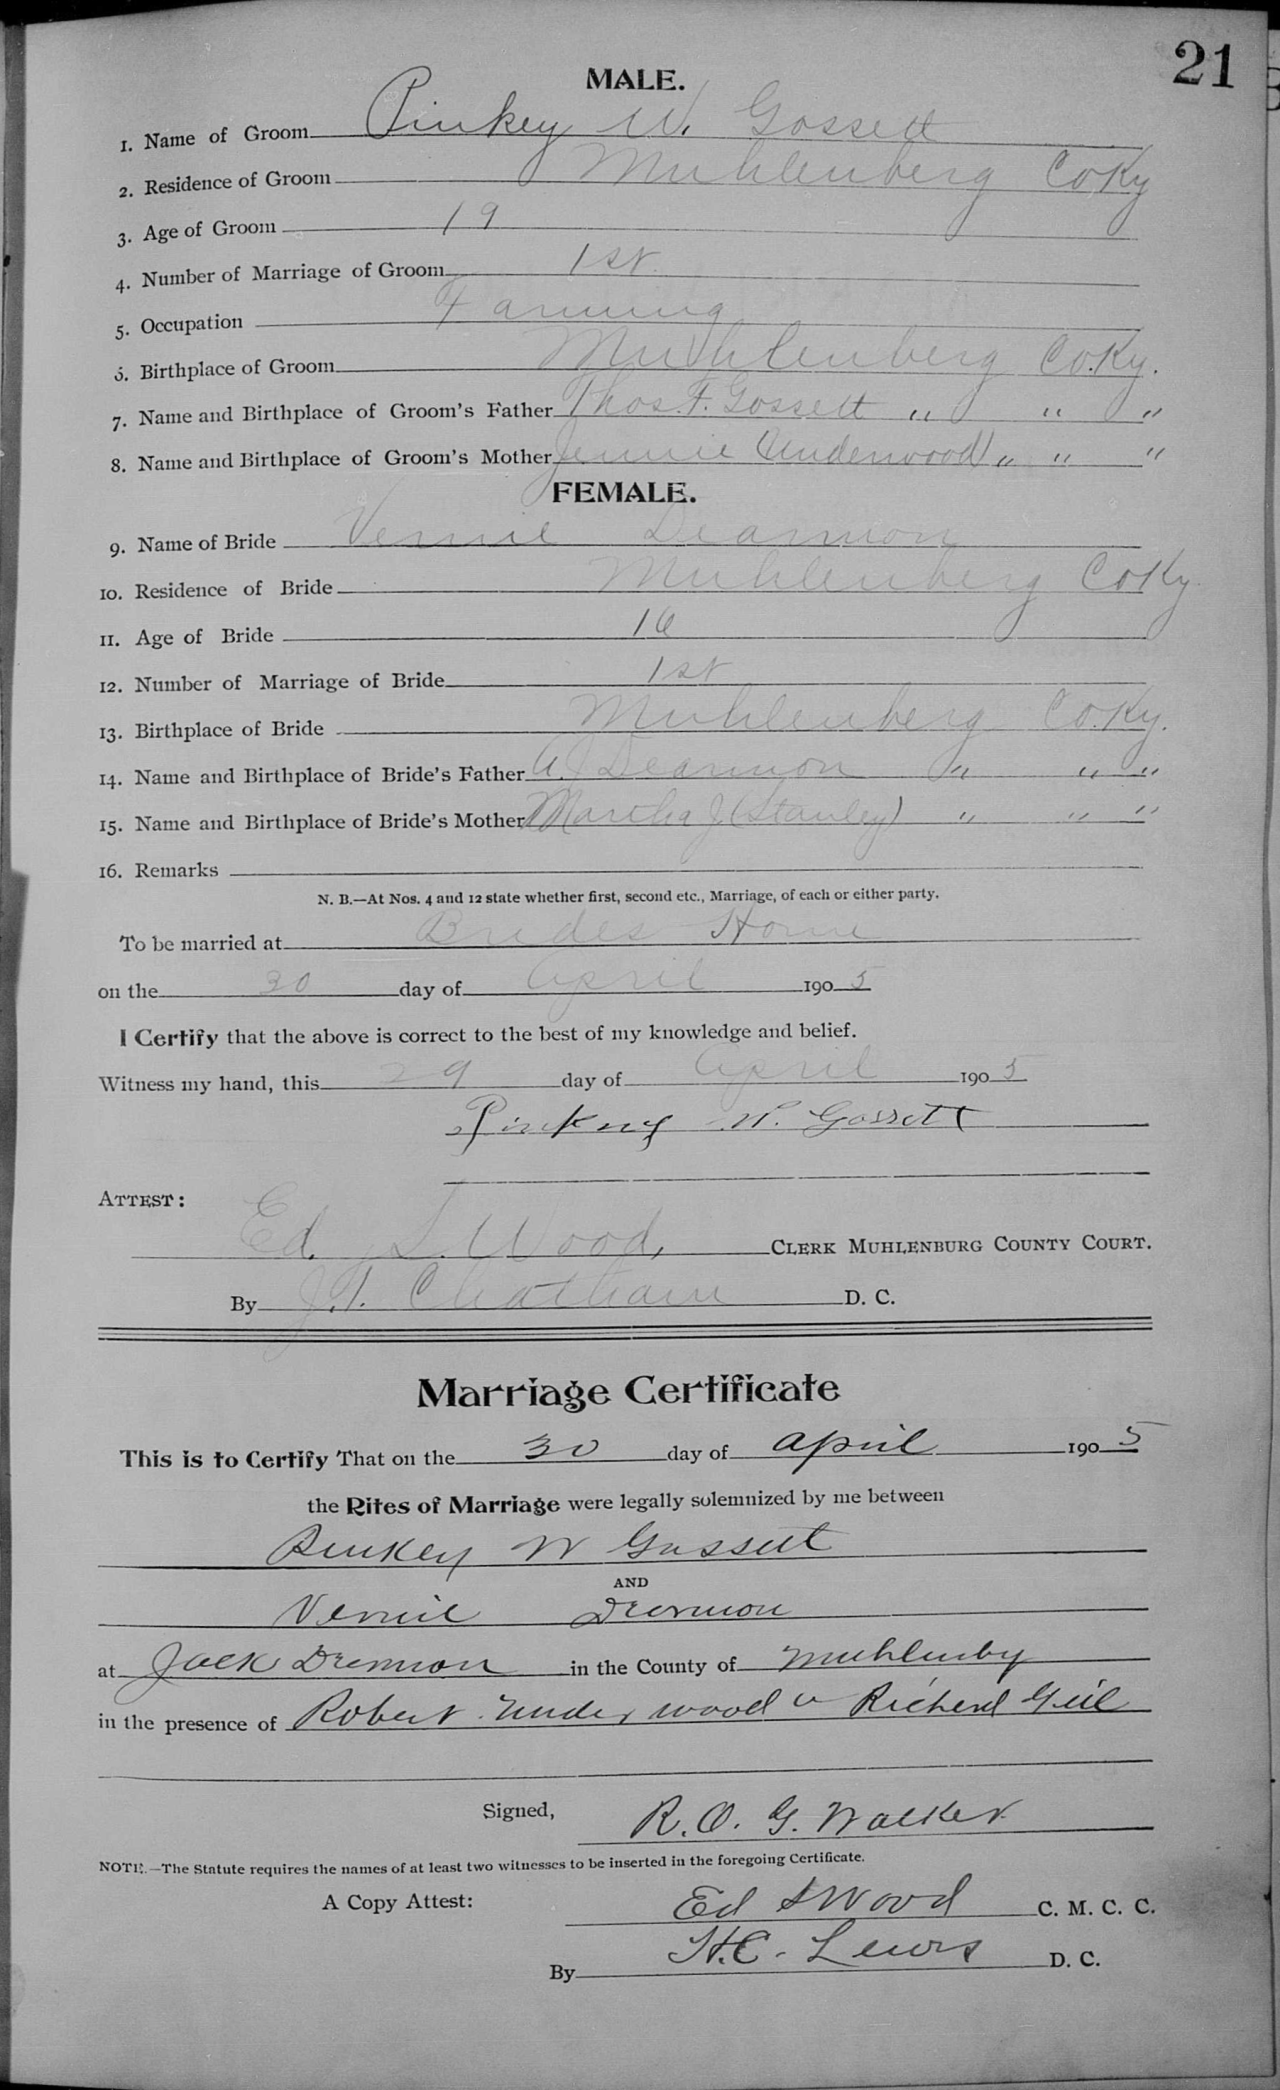 21
MALE.
1. Name of Groom Pinkey W. Gossett
2. Residence of Groom Muhlenberg Co Ky
3. Age of Groom 19
4. Number of Marriage of Groom 1st
5. Occupation Farming
6. Birthplace of Groom Muhlenberg Co. Ky.
7. Name and Birthplace of Groom's Father Thos. F. Gossett " " "
8. Name and Birthplace of Groom's Mother Jennie (Underwood) " " "
FEMALE.
9. Name of Bride Vennie Dearmon
10. Residence of Bride Muhlenberg Co Ky.
11. Age of Bride 16
12. Number of Marriage of Bride 1st
13. Birthplace of Bride Muhlenberg Co. Ky.
14. Name and Birthplace of Bride's Father A. J Dearmon " " "
15. Name and Birthplace of Bride's Mother Martha J (Stanley) " " "
16. Remarks
N. B.—At Nos. 4 and 12 state whether first, second etc., Marriage, of each or either party.
To be married at Brides Home
on the 30 day of April 1905
I Certify that the above is correct to the best of my knowledge and belief.
Witness my hand, this 29 day of April 1905
Pinkney W. Gossett
ATTEST:
Ed. S. Wood, CLERK MUHLENBURG COUNTY COURT.
By J. T. Chatham D. C.
Marriage Certificate
This is to Certify That on the 30 day of April 1905
the Rites of Marriage were legally solemnized by me between
Pinkey W Gossett
AND
Vennie
at Jack in the County of
in the presence of Robert Underwood Richerd
Signed, R. O. G. Walker
NOTE.—The Statute requires the names of at least two witnesses to be inserted in the foregoing Certificate.
A Copy Attest: Ed S Wood C. M. C. C.
By H. C. Lewis D. C.